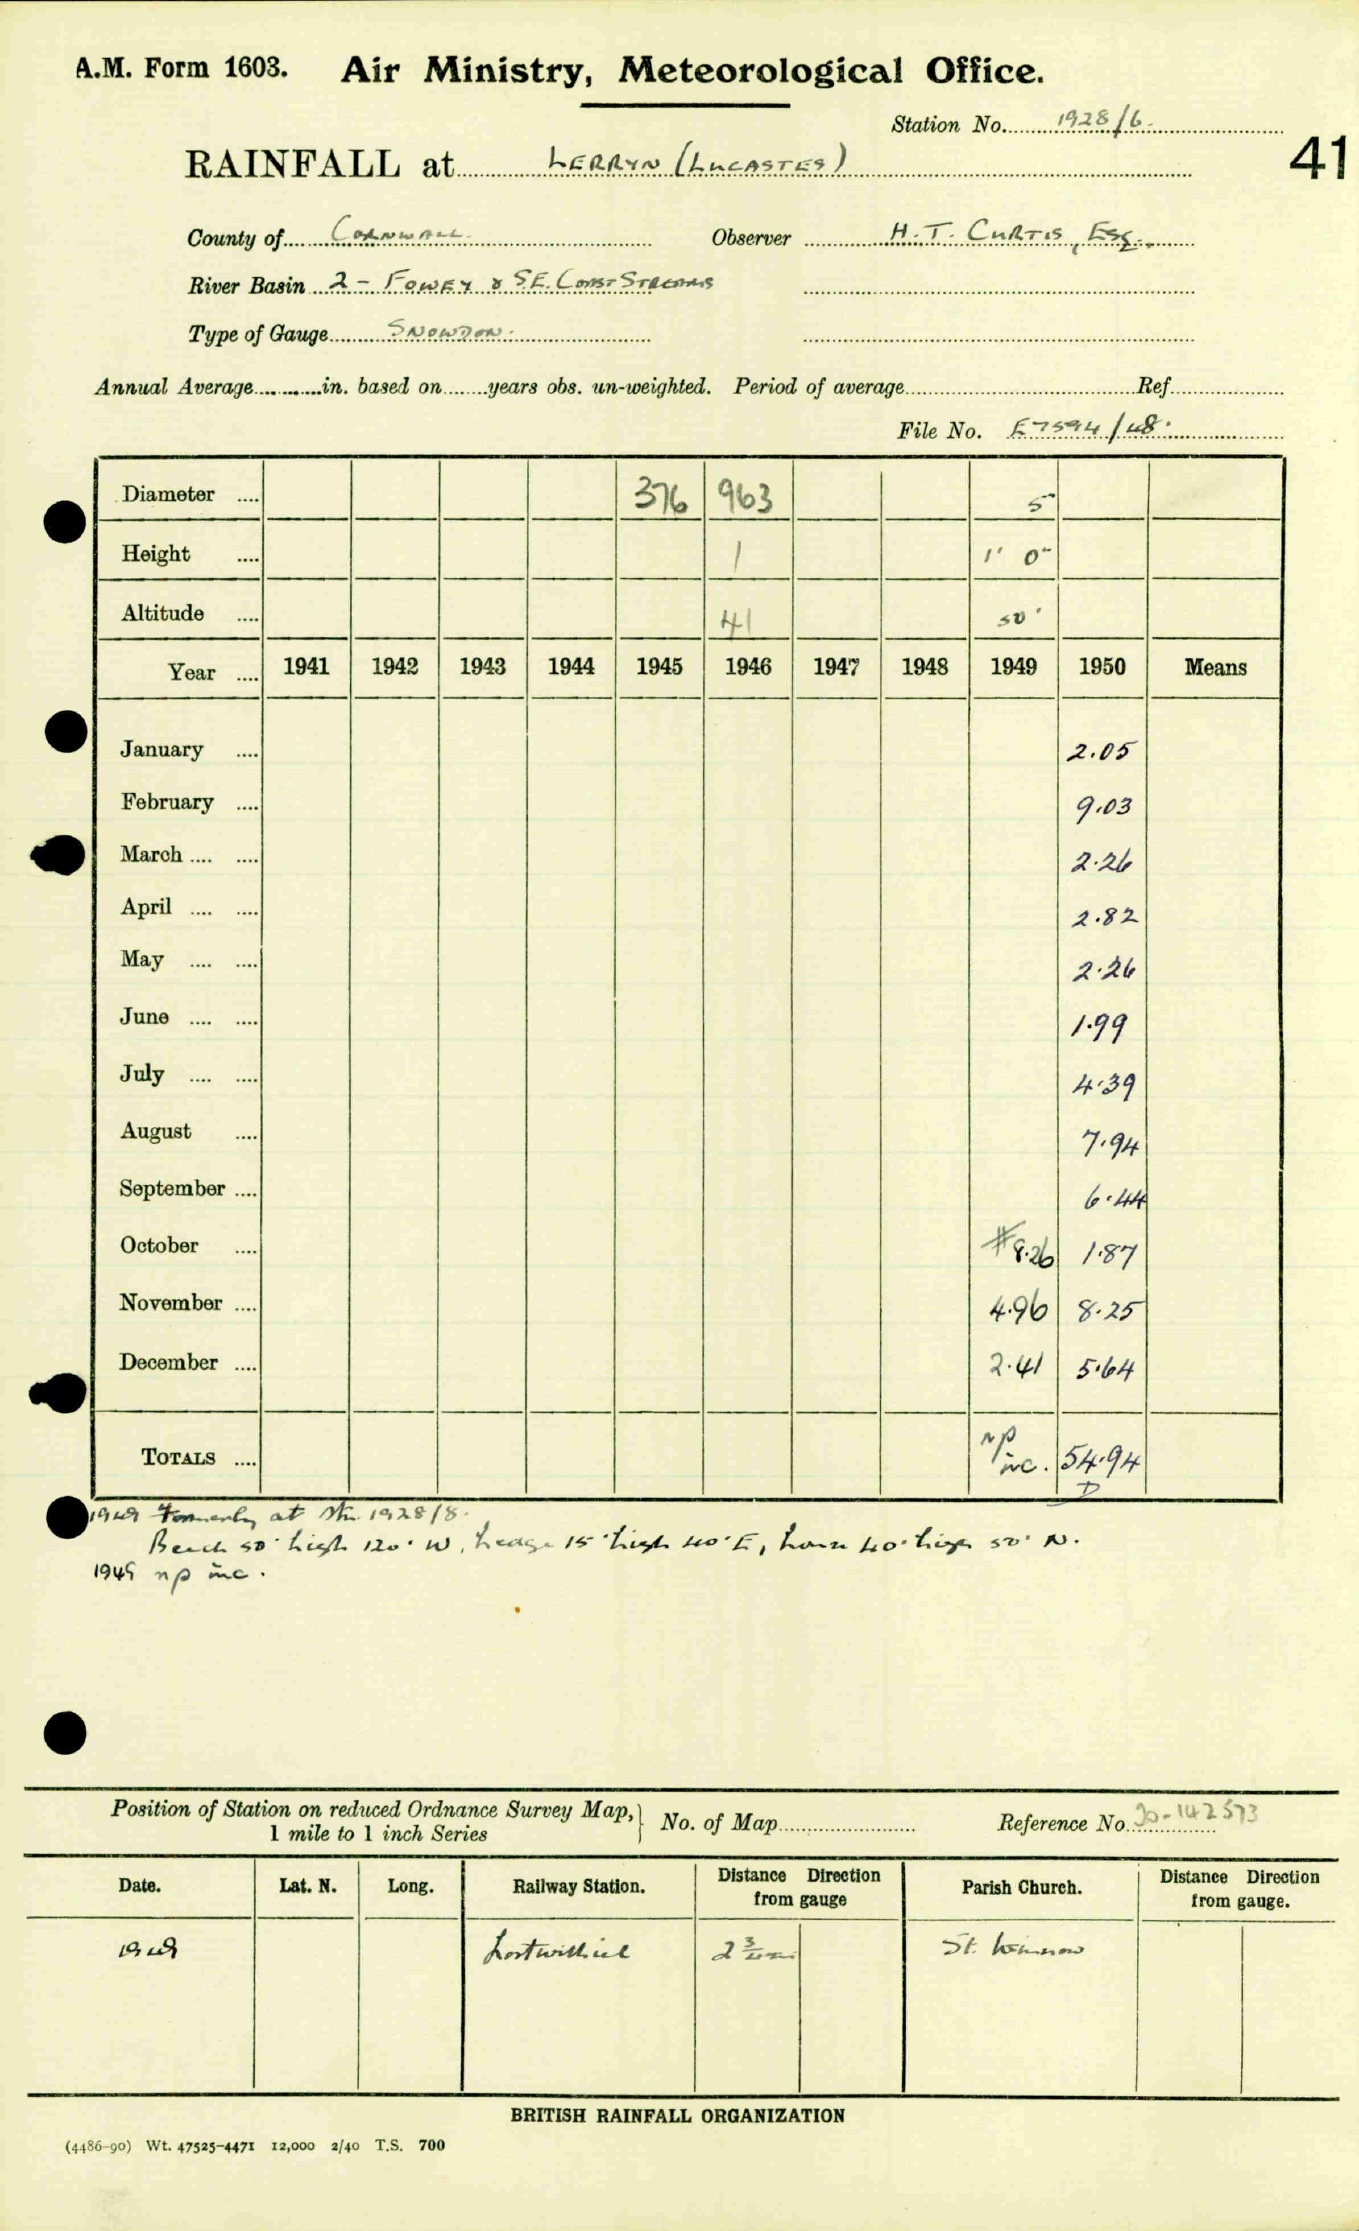 A.M. Form 1603. Air Ministry, Meteorological Office.
Station No. 1928/6.
41
RAINFALL at LERRYN (LUCASTES)
County of CORNWALL. Observer H.T. CURTIS, ESQ.
River Basin 2 - FOWEY & S.E. COAST STREAMS
Type of Gauge SNOWDON.
Annual Average in. based on years obs. un-weighted. Period of average Ref
File No. E7594/48.
Diameter .... 376 963 5"
Height .... 1 1' 0"
Altitude .... 41 50'
Year .... 1941 1942 1943 1944 1945 1946 1947 1948 1949 1950 Means
January .... 2.05
February .... 9.03
March .... .... 2.26
April .... .... 2.82
May .... .... 2.26
June .... .... 1.99
July .... .... 4.39
August .... 7.94
September .... 6.44
October .... # 8.26 1.87
November .... 4.96 8.25
December .... 2.41 5.64
TOTALS .... np inc. 54.94
D
1949 Formerly at Stn. 1928/8.
Beech 50' high 120' W, hedge 15' high 40' E, house 40' high 50' N.
1949 np inc.
Position of Station on reduced Ordnance Survey Map, 1 mile to 1 inch Series } No. of Map Reference No. 20-142573
Date. Lat. N. Long. Railway Station. Distance Direction from gauge Parish Church. Distance Direction from gauge.
1949 Lostwithiel 2 3/4 mi St. Winnow
BRITISH RAINFALL ORGANIZATION
(4486-90) Wt. 47525-4471 12,000 2/40 T.S. 700